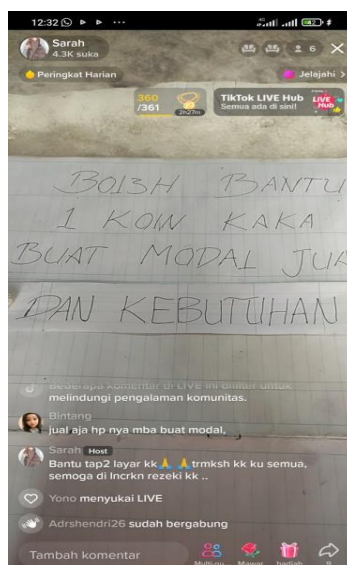 12:32
Sarah
4.3K suka
6
Peringkat Harian
Jelajahi >
360
/361
2h27m
TikTok LIVE Hub
Semua ada di sini!
LIVE
Hub
BOI3H BANTU
1 KOIN KAKA
BUAT MODAL JUA
DAN KEBUTUHAN
Beberapa komentar di LIVE ini difilter untuk
melindungi pengalaman komunitas.
Bintang
jual aja hp nya mba buat modal,
Sarah Host
Bantu tap2 layar kk🙏🙏trmksh kk ku semua,
semoga di lncrkn rezeki kk ..
Yono menyukai LIVE
Adrshendri26 sudah bergabung
Tambah komentar
Multi-gu Mawar hadiah 9